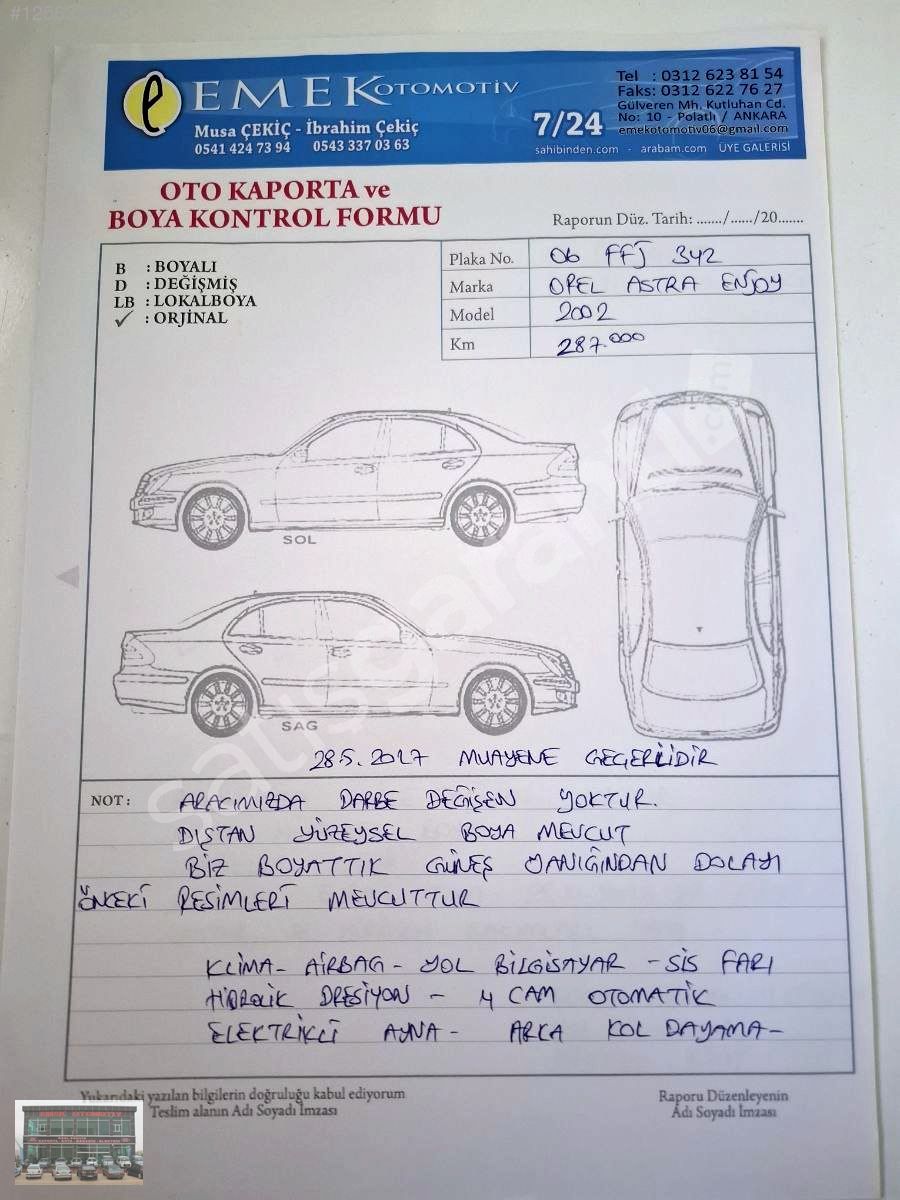 e EMEK OTOMOTİV
Musa ÇEKİÇ - İbrahim Çekiç
0541 424 73 94 0543 337 03 63
7/24
Tel : 0312 623 81 54
Faks: 0312 622 76 27
Gülveren Mh. Kutluhan Cd.
No: 10 - Polatlı / ANKARA
emekotomotiv06@gmail.com
sahibinden.com - arabam.com ÜYE GALERİSİ
OTO KAPORTA ve
BOYA KONTROL FORMU
Raporun Düz. Tarih: ......./....../20.......
B : BOYALI
D : DEĞİŞMİŞ
LB : LOKALBOYA
✓ : ORJİNAL
Plaka No. 06 FFJ 342
Marka OPEL ASTRA ENJOY
Model 2002
Km 287.000
SOL
SAG
28.5.2027 MUAYENE GEÇERLİDİR
NOT: ARACIMIZDA DARBE DEĞİŞEN YOKTUR.
DIŞTAN YÜZEYSEL BOYA MEVCUT
BİZ BOYATTIK GÜNEŞ YANIĞINDAN DOLAYI
ÖNCEKİ RESİMLERİ MEVCUTTUR
KLİMA- AİRBAG - YOL BİLGİSAYAR - SİS FARI
HİDROLİK DRESİYON - 4 CAM OTOMATİK
ELEKTRİKLİ AYNA - ARKA KOL DAYAMA -
Yukarıdaki yazılan bilgilerin doğruluğu kabul ediyorum
Teslim alanın Adı Soyadı İmzası
Raporu Düzenleyenin
Adı Soyadı İmzası
satışgarantili.com
EMEK OTOMOTİV